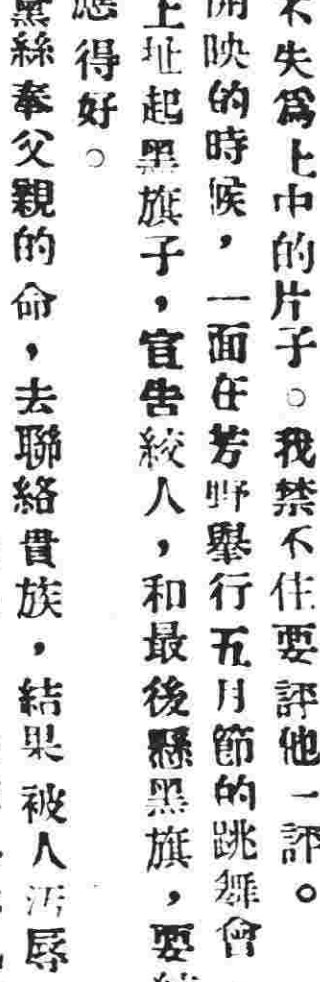 不失爲上中的片子。我禁不住要評他一評。
開映的時候，一面在芳野舉行五月節的跳舞會
上址起黑旗子，宣告絞人，和最後懸黑旗，要
應得好。
黛絲奉父親的命，去聯絡貴族，結果被人汚辱